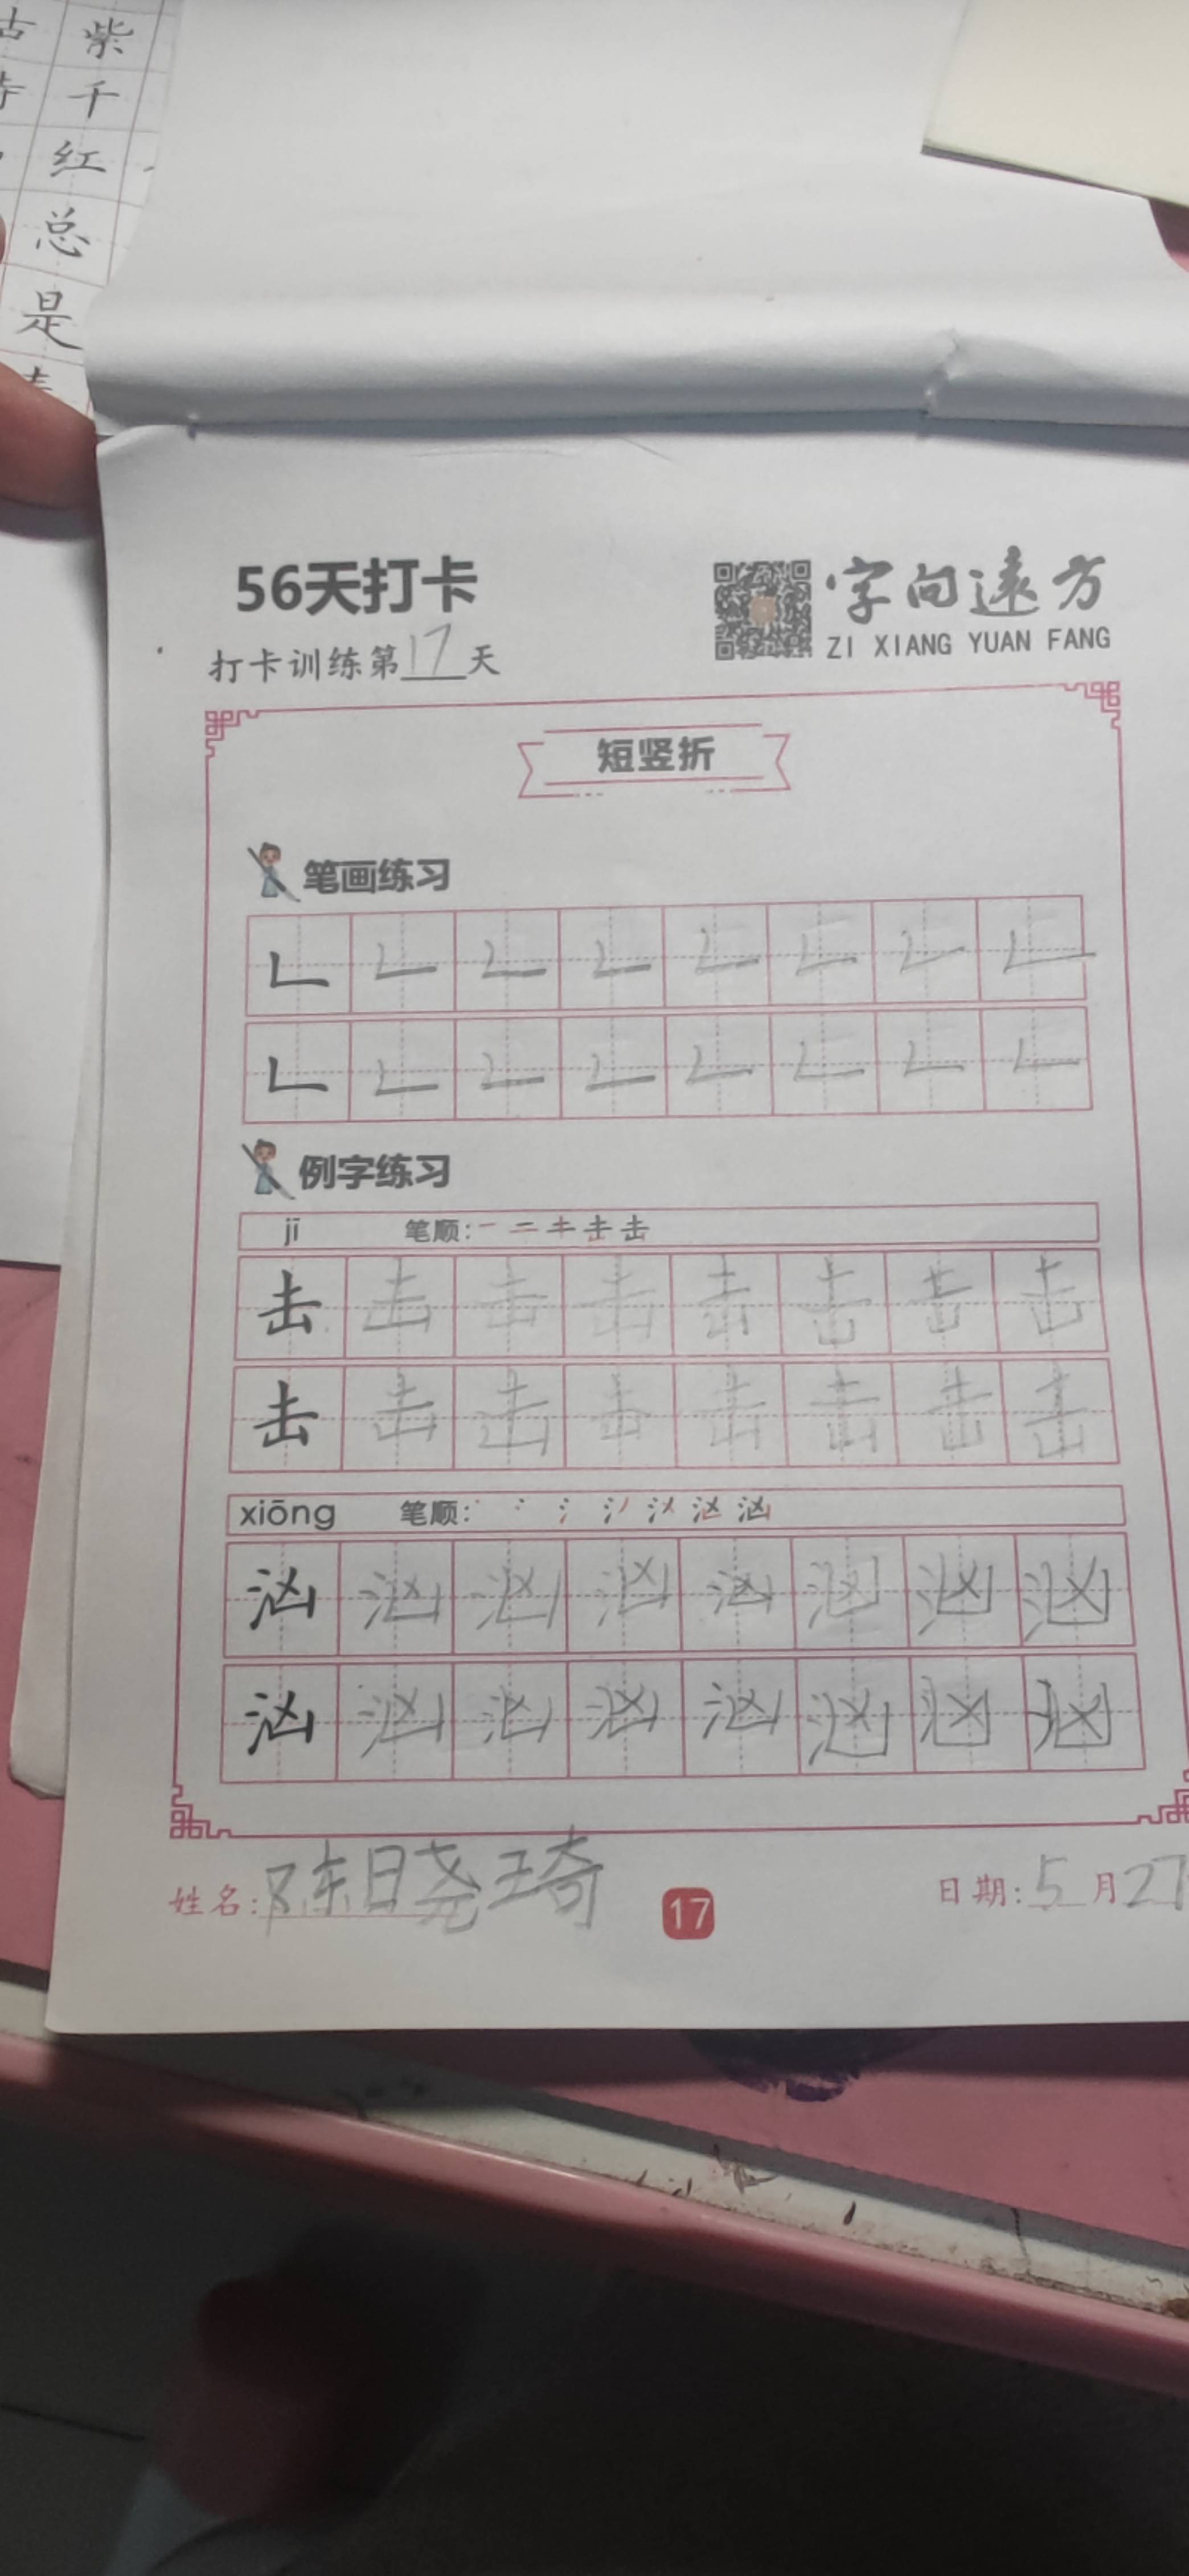 古 紫
千
红
总
是
56天打卡
字向远方
ZI XIANG YUAN FANG
打卡训练第17天
短竖折
笔画练习
𠃊 𠃊 𠃊 𠃊 𠃊 𠃊 𠃊 𠃊
𠃊 𠃊 𠃊 𠃊 𠃊 𠃊 𠃊 𠃊
例字练习
jī 笔顺: 一 二 キ 击 击
击 击 击 击 击 击 击 击
击 击 击 击 击 击 击 击
xiōng 笔顺:
汹 汹 汹 汹 汹 汹 汹 汹
汹 汹 汹 汹 汹 汹 汹 汹
姓名: 陈晓琦
17
日期: 5月27